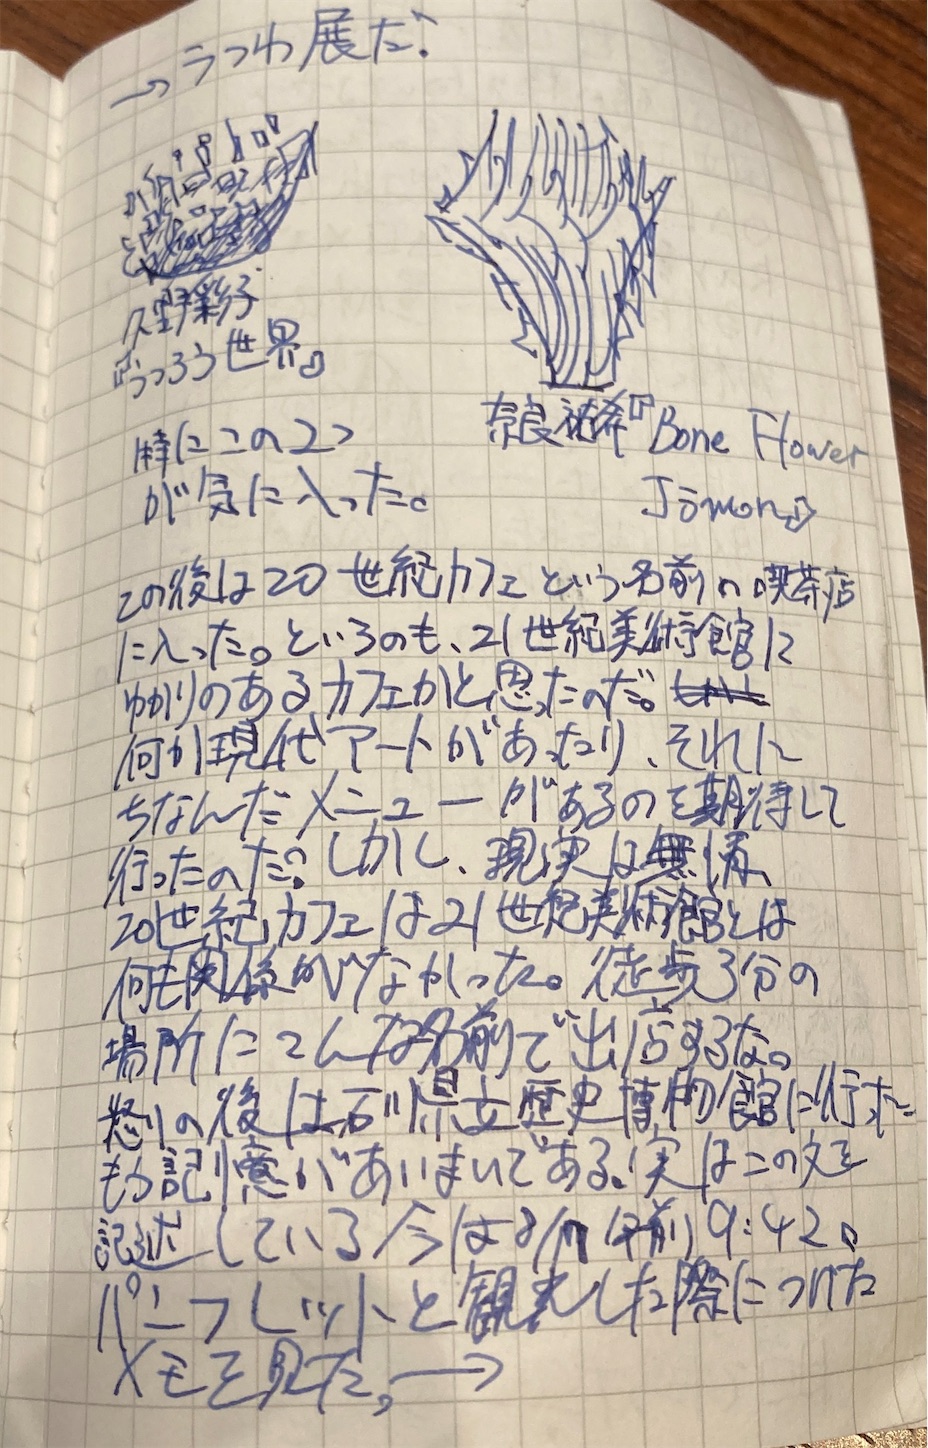 →うつわ展だ。
久野彩子
『うつろう世界。』
特にこの2つ
が気に入った。
奈良祐希『Bone Flower
Jōmon』
この後は20世紀カフェという名前の喫茶店
に入った。というのも、21世紀美術館に
ゆかりのあるカフェかと思ったのだ。
何か現代アートがあったり、それに
ちなんだメニューがあるのを期待して
行ったのだ。しかし、現実は無情、
20世紀カフェは21世紀美術館とは
何も関係がなかった。徒歩3分の
場所にこんな名前で出店するな。
怒りの後は石川県立歴史博物館に行った
もう記憶があいまいである。実はこの文を
記述している今は8/11 午前9:42。
パンフレットと観光した際につけた
メモを見た。→